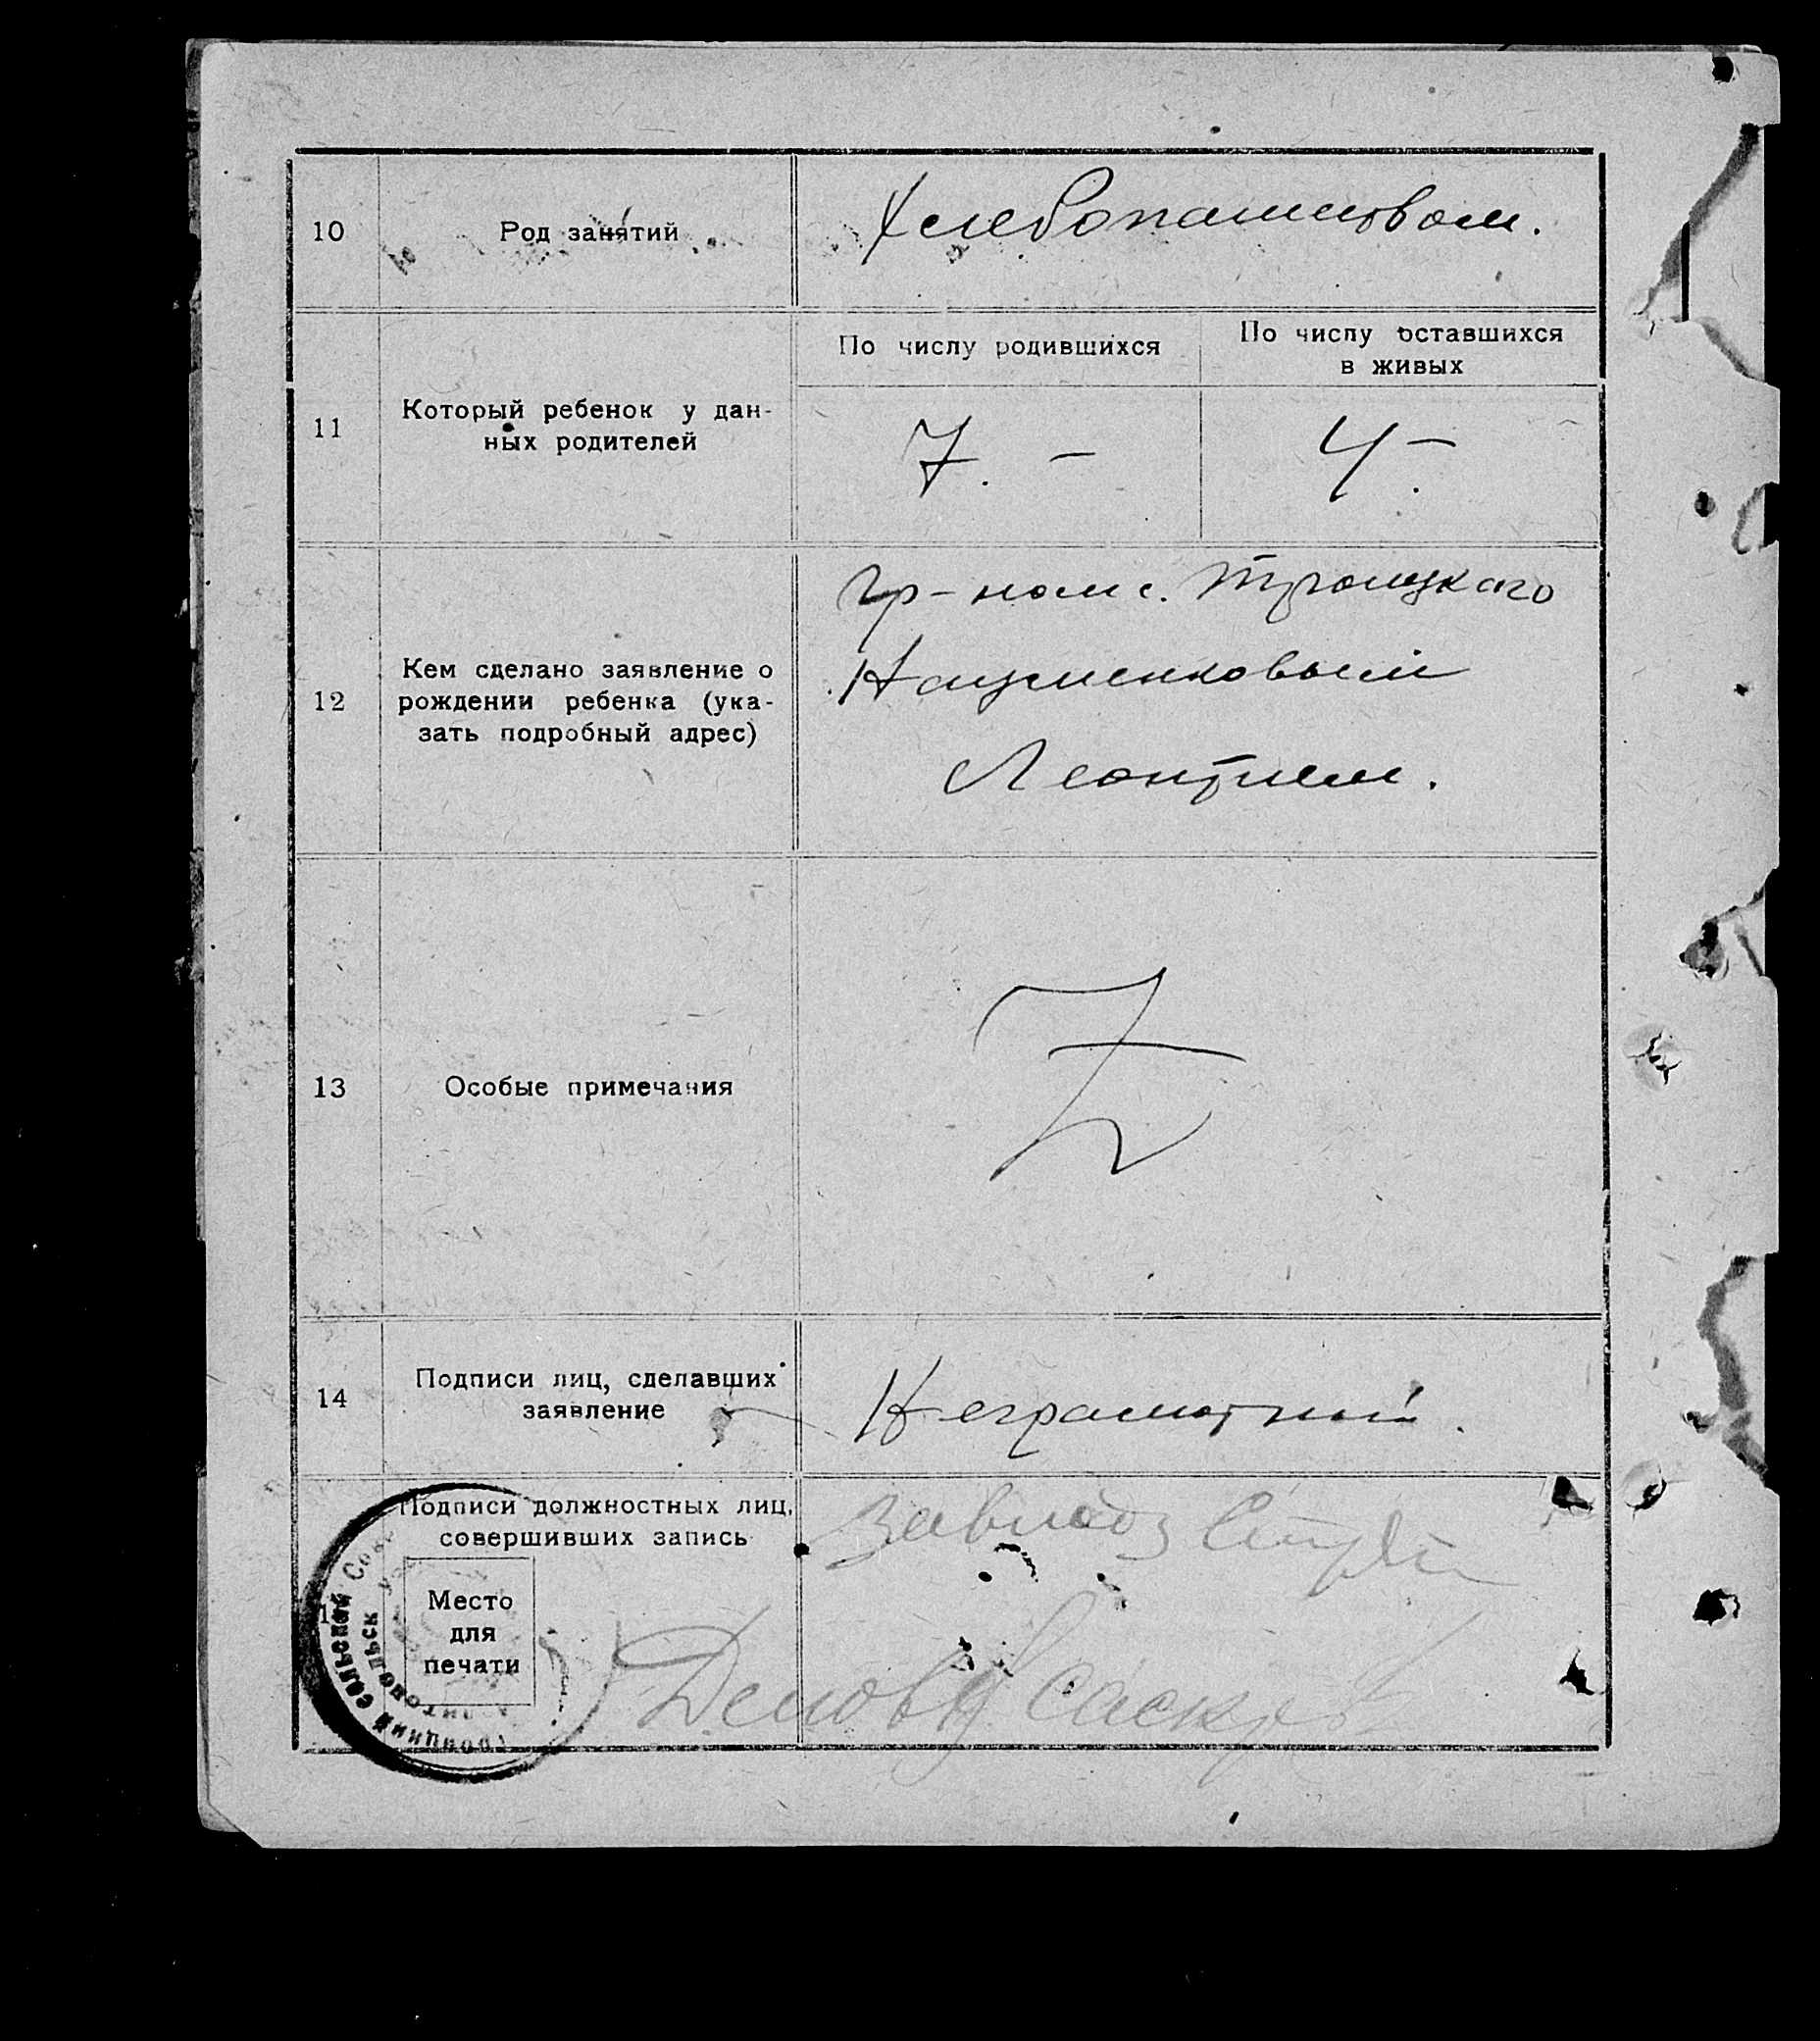 10
Род занятий
Хлебопашеством.
11
Который ребенок у дан-
ных родителей
По числу родившихся
По числу оставшихся
в живых
7. -
4 -.
12
Кем сделано заявление о
рождении ребенка (ука-
зать подробный адрес)
Гр-ном с. Троицкаго
Науменковым
Леонтием.
13
Особые примечания
14
Подписи лиц, сделавших
заявление
Неграмотный.
Подписи должностных лиц,
совершивших запись
Место
для
печати
сельский Сов
Делов